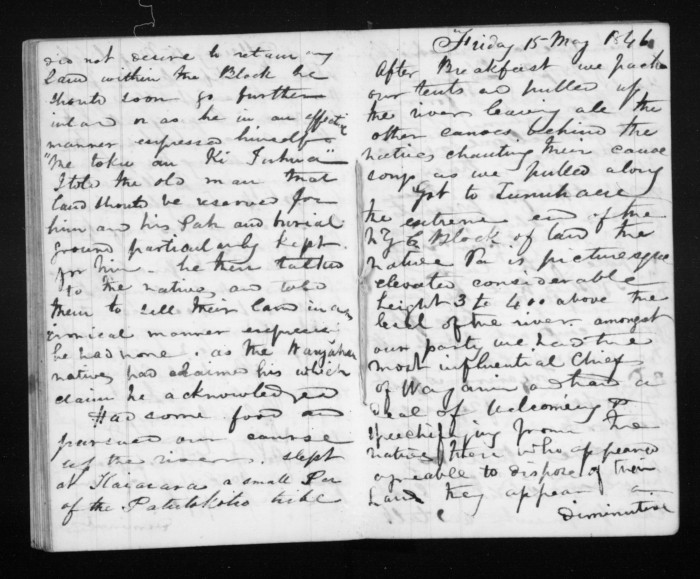 did not desire to retain any
Land within the Block he
should soon go further
inland or as he in an effective
manner expressed himself
"Me toku au Ki
I told the old man that
land should be reserved for
him and his Pah and burial
ground particularly kept
for him - he then talked
to the natives and told
them to sell their land in a
manner
he had none. as the
natives had claimed his which
claim he acknowledged
Had some food and
pursued our course
up the river. slept
at Karacara a small Pa
of the tribe
Friday 15 May 1846
After Breakfast we packed
our tents and pulled up
the river leaving all the
other canoes behind the
natives chanting their canoe
songs as we pulled along
Got to
the extreme end of the
NZ Co Block of land the
native Pa is picturesque
elevated considerable
height 3 to 400 above the
level of the river amongst
our party we had the
most influential Chief
of Waganui and had a
deal of Welcoming &
speechifying from the
natives there who appeared
agreeable to dispose of their
Land they appear a
diminutive